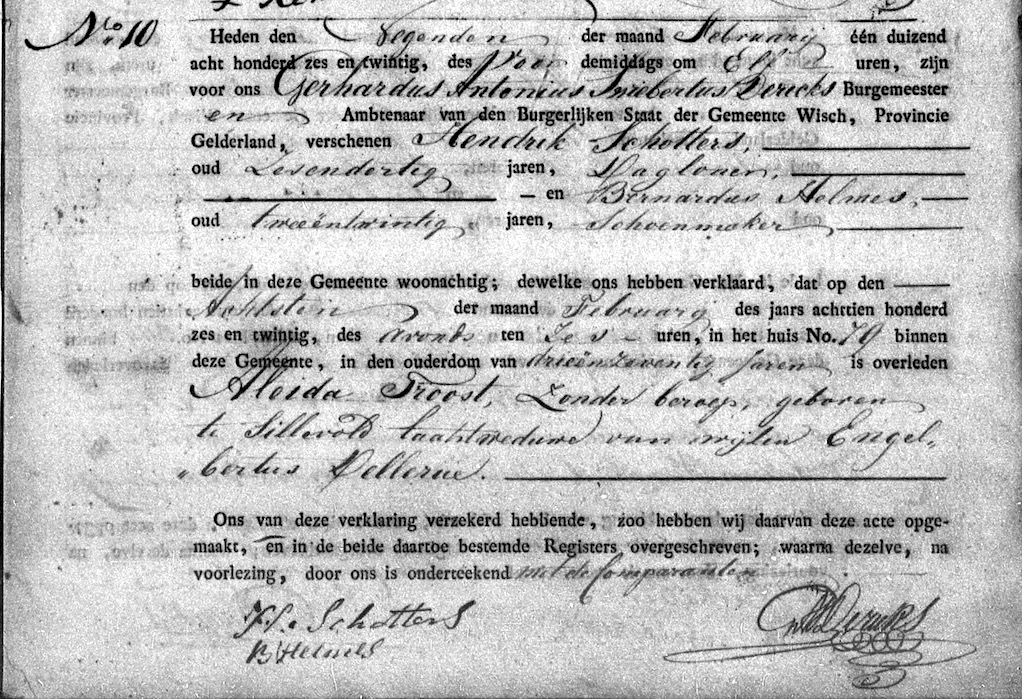 No. 10
Heden den Negenden der maand February één duizend
acht honderd zes en twintig, des Voor demiddags om Elf uren, zijn
voor ons Gerhardus Antonius Dericks Burgemeester
en Ambtenaar van den Burgerlijken Staat der Gemeente Wisch, Provincie
Gelderland, verschenen Hendrik Schotters,
oud Zesendertig jaren, Daglooner,
– en Bernardus Helmes,
oud tweeëntwintig jaren, Schoenmaker
beide in deze Gemeente woonachtig; dewelke ons hebben verklaard, dat op den
Achtsten der maand February des jaars achttien honderd
zes en twintig, des avonds ten Zes uren, in het huis No. 79 binnen
deze Gemeente, in den ouderdom van drieënzeventig Jaren is overleden
Aleida Troost, Zonder beroep, geboren
te Sillevold laatst weduwe van wijlen Engel„
„bertus
Ons van deze verklaring verzekerd hebbende, zoo hebben wij daarvan deze acte opge-
maakt, en in de beide daartoe bestemde Registers overgeschreven; waarna dezelve, na
voorlezing, door ons is onderteekend met de Comparanten
H. Schotters
B Helmes
Dericks